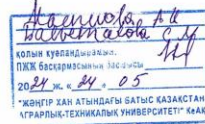 Жаспиова А И
С. М.
қолын куәландырамын.
ПЖЖ басқармасының басшысы
2024 ж. « 24 » 05
"ЖӘҢГІР ХАН АТЫНДАҒЫ БАТЫС ҚАЗАҚСТАН
АГРАРЛЫҚ-ТЕХНИКАЛЫҚ УНИВЕРСИТЕТІ" КеАҚ